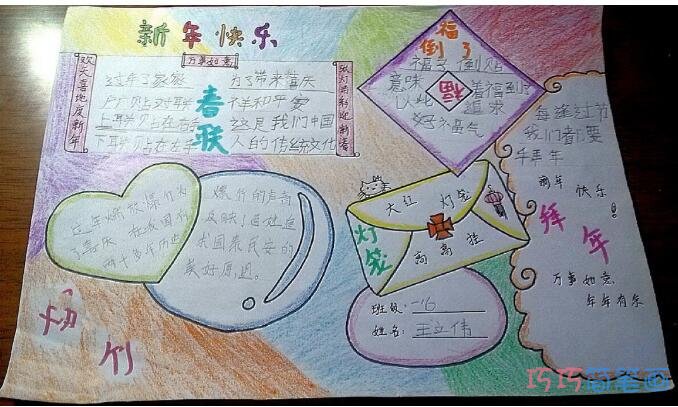 新年快乐
万事如意
欢天喜地度新年
张灯结彩迎新春
过年了家家
户户贴对联
上联贴在右手
下联贴在左手
春联
为了带来喜庆
祥和平安
这是我们中国
人的传统文化
福
倒了
福字倒贴
意味着福到
以此追求
好福气
福
每逢过节
我们都要
拜年
新年快乐!
拜年
万事如意
年年有余
过年燃放爆竹为
了喜庆 在我国有
两千多年历史
爆竹的声音
反映了团社追
求国泰民安的
美好愿望。
大红灯笼
高高挂
灯笼
班级:一6
姓名:王立伟
爆竹
巧巧简笔画